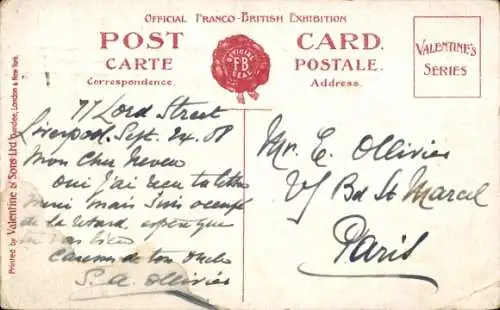 Official Franco-British Exhibition
POST CARD.
CARTE POSTALE.
Correspondence. Address.
OFFICIAL
F-B
SEAL
VALENTINE'S
SERIES
Printed by Valentine & Sons Ltd. Dundee, London & New York.
77 Lord Street
Liverpool. Sept. 24. 08
Mon Cher Neveu
Oui j'ai reçu ta lettre
mais suis occupé
de la retard. espère que
tu vas bien
de ton Oncle
S. A. Ollivier
Mr. E. Ollivier
Bd St Marcel
Paris